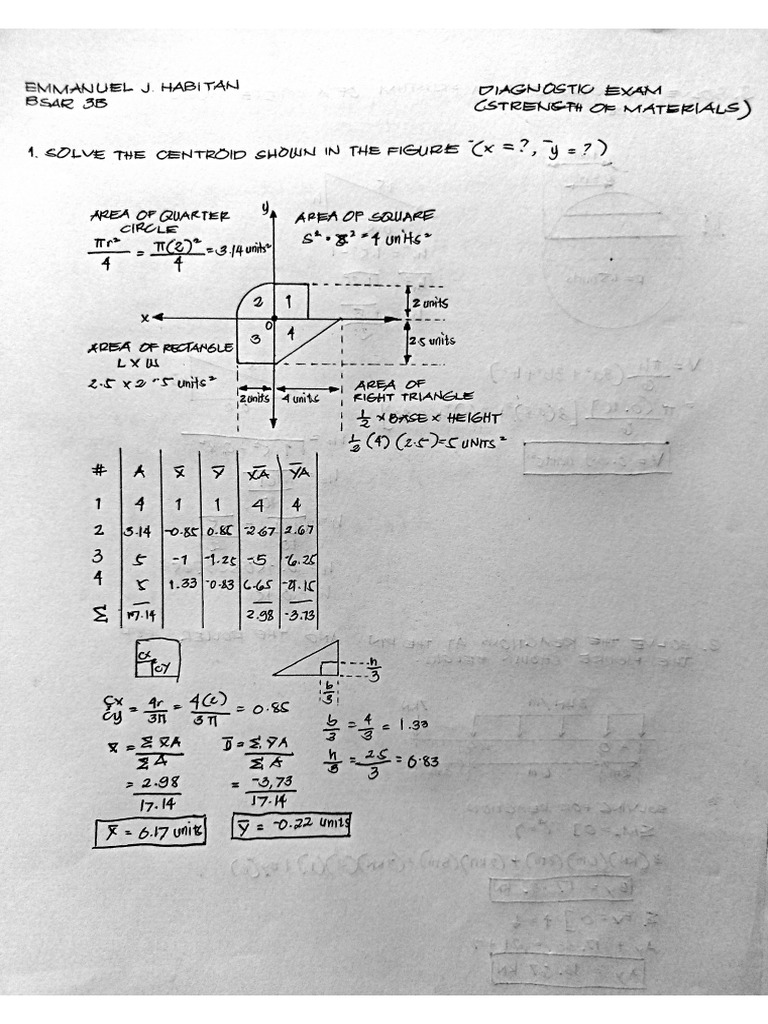 EMMANUEL J. HABITAN
BSAR 3B
DIAGNOSTIC EXAM
(STRENGTH OF MATERIALS)
1. SOLVE THE CENTROID SHOWN IN THE FIGURE ¯(x = ?, ¯y = ?)
AREA OF QUARTER
CIRCLE
πr²/4 = π(2)²/4 = 3.14 units²
y
AREA OF SQUARE
S² = 2² = 4 units²
2
1
2 units
x
0
3
4
2.5 units
AREA OF RECTANGLE
L x W
2.5 x 2 = 5 units²
2 units
4 units
AREA OF
RIGHT TRIANGLE
1/2 x BASE x HEIGHT
1/2 (4) (2.5) = 5 UNITS²
# A x̄ ȳ x̄A ȳA
1 4 1 1 4 4
2 3.14 -0.85 0.85 -2.67 2.67
3 5 -1 -1.25 -5 -6.25
4 5 1.33 -0.83 6.65 -4.15
Σ 17.14 2.98 -3.73
Cx
Cy
h/3
b/3
Cx
Cy = 4r/3π = 4(2)/3π = 0.85
b/3 = 4/3 = 1.33
h/3 = 2.5/3 = 0.83
x̄ = Σx̄A/ΣA
= 2.98/17.14
= ΣȳA/ΣA
= -3,73/17.14
x̄ = 0.17 units
ȳ = -0.22 units